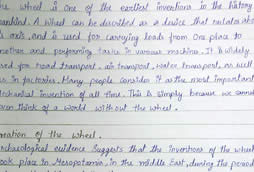 he wheel is one of the earliest inventions in the history
mankind. A wheel can be described as a device that rotates abo
s axis, and is used for carrying loads from one place to
nother and performing tasks in various machine. It is widely
sed for road transport, air transport, water transport, as well
as in factories. Many people consider it as the most important
echanical invention of all time. This is simply because we cannot
even think of a world without the wheel.
reation of the wheel.
rchaeological evidence suggests that the inventions of the wheel
ook place in Mesopotamia, in the middle East, during the period